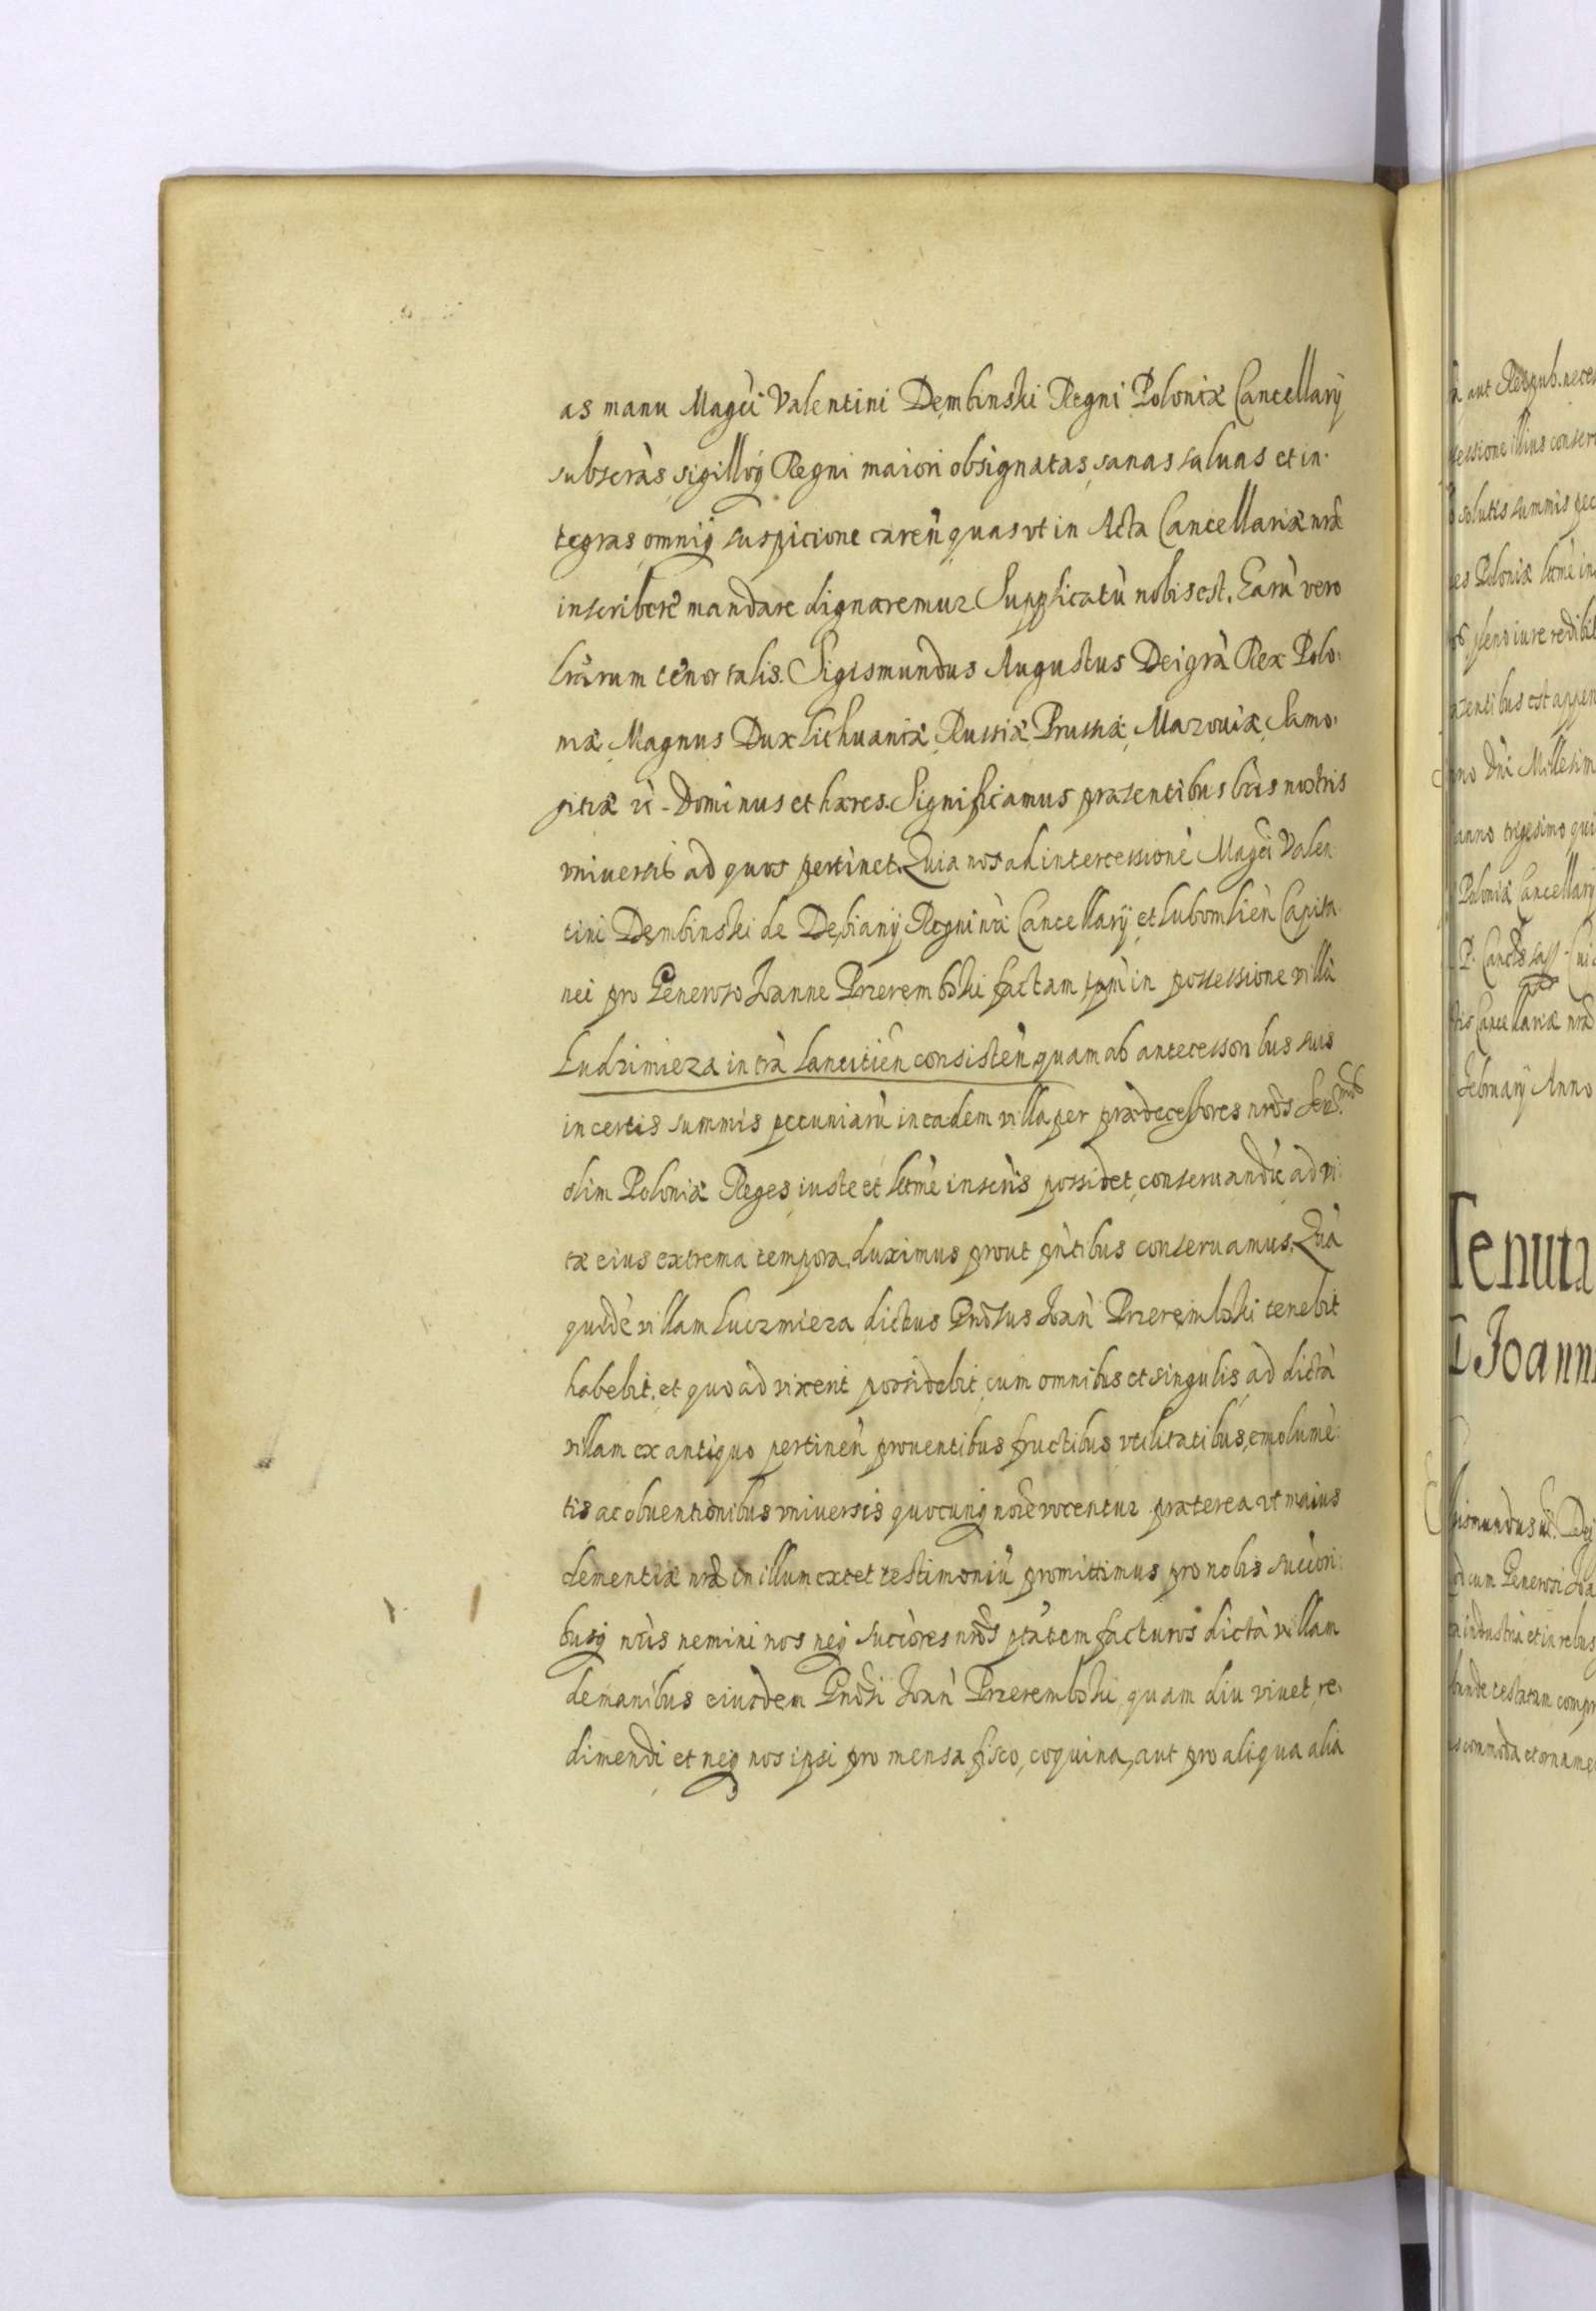 as manu Magci Valentini Dembinski Regni Poloniæ Cancellarij
subscràs sigilloq Regni maiori obsignatas sanas saluas et in-
tegras omniq suspicione careñ quas vt in Acta Cancellariæ nræ
inscribere mandare dignaremur Supplicatū nobis est. Earū vero
lrarum tenor talis. Sigismundus Augustus Dei grà Rex Polo:
niæ Magnus Dux Lithuaniæ, Russiæ, Prussiæ, Mazouiæ, Samo-
gitiæ zc - Dominus et hæres. Significamus præsentibus lris nostris
vniuersis ad quos pertinet. Quia nos ad intercessionē Magci Valen
tini Dembinski de Debiany Regni nri Cancellarij et Lubomlien Capita
nei pro Generoso Joanne Przerembski factam, ipm in possessione villæ
Ludzimierza in tra Lancitien consisteñ quam ab antecessoribus suis
in certis summis pecuniarū in eadem villa per prædecessores nros Ser.mos
olim Poloniæ Reges iuste et lttme inscris possidet conseruandū ad vi:
tæ eius extrema tempora duximus prout pntibus conseruamus. Quā
quidē villam Luczmierza dictus Gnosus Joan Przerembski tenebit
habebit, et quoad vixerit possidebit, cum omnibus et singulis ad dictā
villam ex antiquo pertineñ prouentibus fructibus vtilitatibus, emolumē:
tis ac obuentionibus vniuersis quocunq noie vocentur præterea vt maius
clementiæ nræ in illum extet testimoniū promittimus pro nobis succori:
busq nris nemini nos neq succores nros ptatem facturos dictā villam
de manibus eiusdem Gnosi Joan Przerembski quam diu viuet, re-
dimendi et neq nos ipsi pro mensa fisco, coquina, aut pro aliqua alia
a aut Reipub. neces
sessione illius conser
solutis summis pec
es Poloniæ lttme in
pleno iure redibit
sentibus est appen
nno Dni Millesim
anno trigesimo qui
Poloniæ Cancellarij
tis Cancellariæ nræ
Februarij Anno
Tenuta
Joanni
gismundus
cum Generosi Joa
industria et in rebus
unde testatam compr
commoda et orname